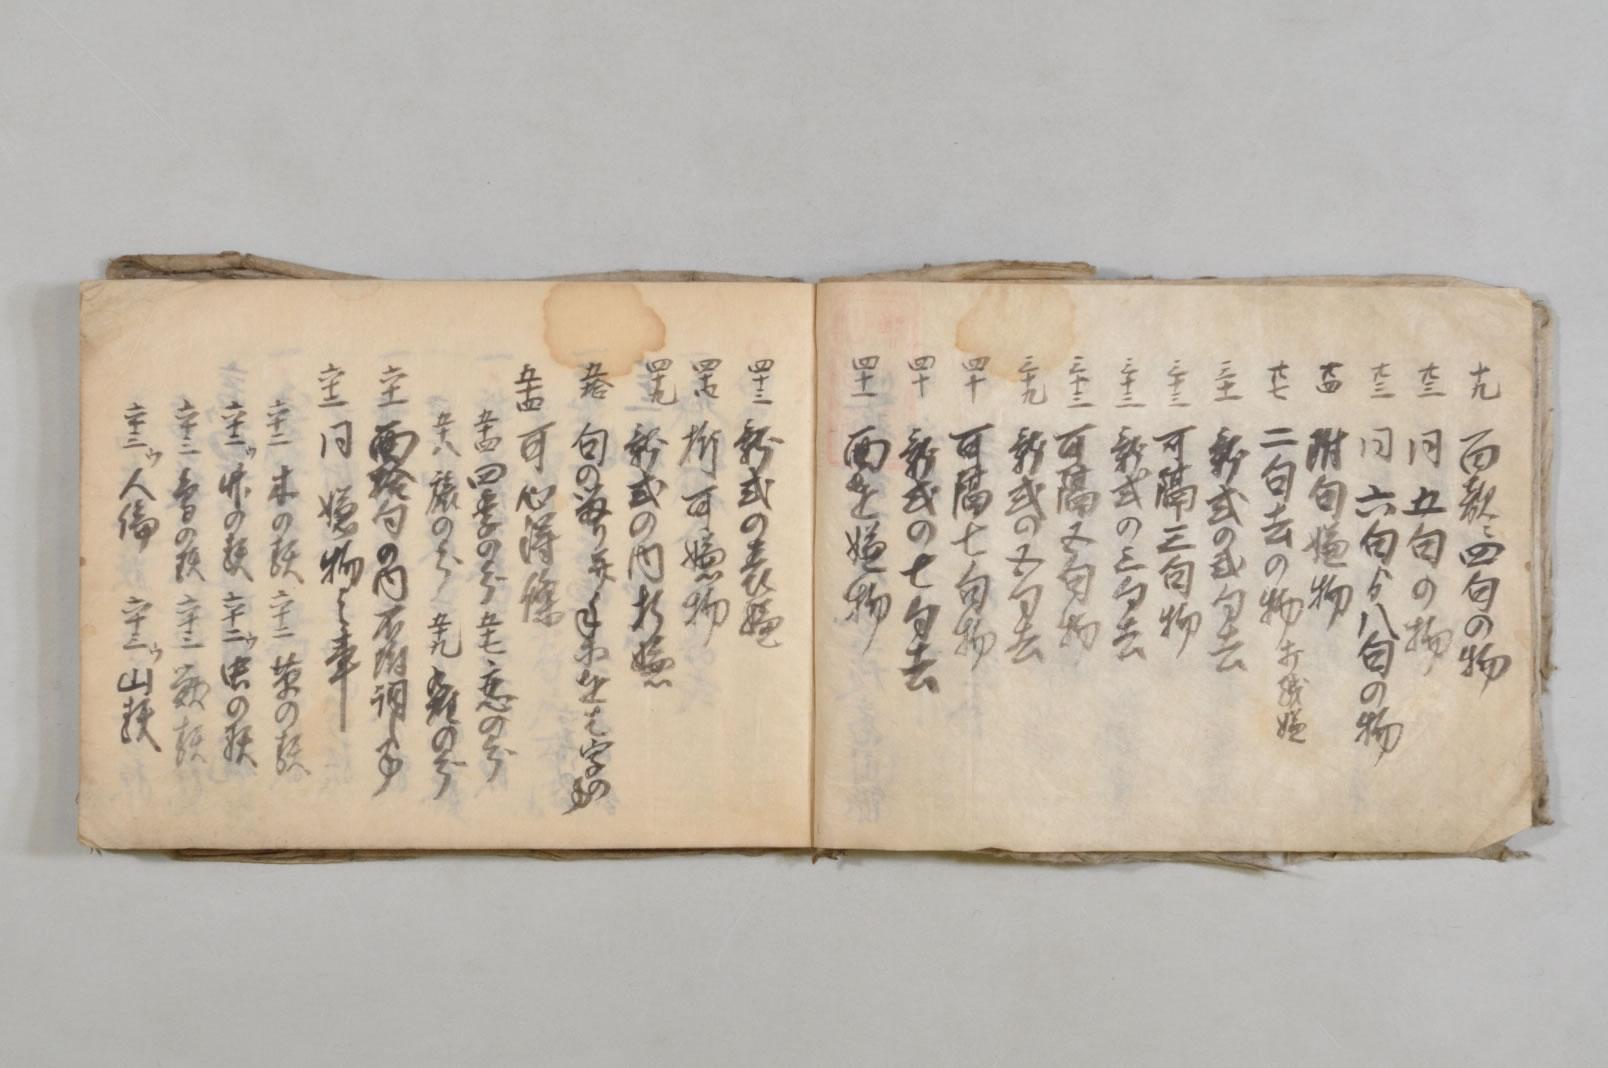 十九 百韻ニ四句の物
廿三 同五句の物
廿三 同六句ゟ八句の物
廿四 附句嫌物
廿七 二句去の物 打越嫌
三十一 新式の弐句去
三十三 可隔三句物
三十三 新式の三句去
三十三 可隔五句物
三十九 新式の五句去
四十 可隔七句物
四十 新式の七句去
四十一 面を嫌物
四十三 新式の表嫌
折可嫌物
四十九 新式の内折嫌
句の
五十四 可心得條
五十四 四季の分 五十七 恋の分
五十八 旅の分 五十九 の分
六十一 面拾句の内不附詞
六十一 同嫌物之事
六十二 木の類 六十二 草の類
六十二ウ の類 六十二ウ 虫の類
六十三 の類 六十三 獣類
六十三ウ 人倫 六十三ウ 山類